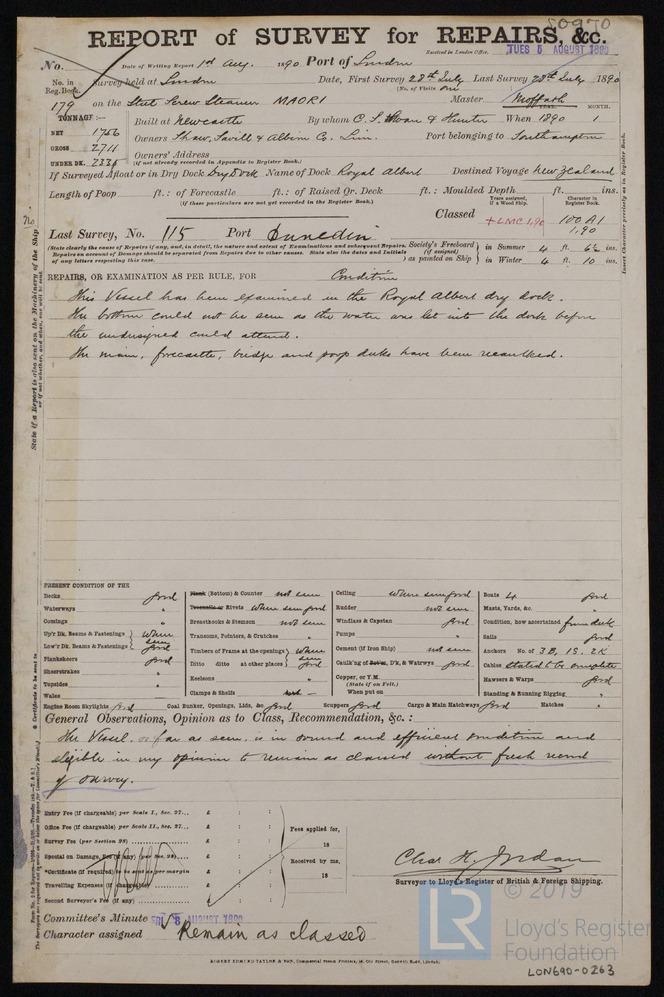 50970
REPORT of SURVEY for REPAIRS, &c.
Received in London Office, TUES 5 AUGUST 1890
No. Date of Writing Report 1st Aug. 1890 Port of London
No. in Reg. Book. Survey held at London Date, First Survey 28th July Last Survey 28th July 1890
(No. of Visits one)
179 on the Steel Screw Steamer MAORI Master Moffath
TONNAGE:— Built at Newcastle By whom C. S. Swan & Hunter When 1890 1
YEAR. MONTH.
NET 1756
GROSS 2711 Owners Shaw, Savill & Albion Co. Lim. Port belonging to Southampton
UNDER DK. 2336 Owners' Address
(if not already recorded in Appendix to Register Book.)
If Surveyed Afloat or in Dry Dock Dry Dock Name of Dock Royal Albert Destined Voyage New Zealand
Length of Poop ft.: of Forecastle ft.: of Raised Qr. Deck ft.: Moulded Depth ft. ins.
(If these particulars are not yet recorded in the Register Book.)
Years assigned, if a Wood Ship. Character in Register Book.
Classed +LMC 1,90 100 A1
1,90
Last Survey, No. 115 Port Dunedin
(State clearly the cause of Repairs if any, and, in detail, the nature and extent of Examinations and subsequent Repairs.
Repairs on account of Damage should be separated from Repairs due to other causes. State also the dates and Initials
of any letters respecting this case.
Society's Freeboard (if assigned) as painted on Ship
in Summer 4 ft. 6½ ins.
in Winter 4 ft. 10 ins.
REPAIRS, OR EXAMINATION AS PER RULE, FOR Condition
This Vessel has been examined in the Royal Albert dry dock.
The bottom could not be seen as the water was let into the dock before
the undersigned could attend.
The main, forecastle, bridge and poop decks have been recaulked.
Insert Character precisely as in Register Book.
No
State if a Report is also sent on the Machinery of the Ship
PRESENT CONDITION OF THE
Decks good
Waterways "
Comings "
Up'r Dk. Beams & Fastenings
Low'r Dk. Beams & Fastenings
where seen good
Planksheers good
Sheerstrakes "
Topsides "
Wales "
Plank (Bottom) & Counter not seen
Treenails or Rivets where seen good
Breasthooks & Stemson not seen
Transoms, Pointers, & Crutches "
Timbers of Frame at the openings
Ditto ditto at other places
where seen good
Keelsons "
Clamps & Shelfs
Ceiling where seen good
Rudder not seen
Windlass & Capstan good
Pumps "
Cement (if Iron Ship) not seen
Caulk'ng of Botm, D'k, & Watrwys good
Copper, or Y.M.
(State if on Felt.)
When put on
Boats 4 good
Masts, Yards, &c. "
Condition, how ascertained from deck
Sails good
Anchors No. of 3B, 1S, 2K
Cables stated to be complete
Hawsers & Warps good
Standing & Running Rigging "
Engine Room Skylights good Coal Bunker, Openings, Lids, &c. good Scuppers good Cargo & Main Hatchways good Hatches "
General Observations, Opinion as to Class, Recommendation, &c. :
The Vessel, so far as seen, is in sound and efficient condition and
eligible in my opinion to remain as classed without fresh record
of survey.
Entry Fee (if chargeable) per Scale I., Sec. 27... £ : :
Office Fee (if chargeable) per Scale II., Sec. 27... £ : :
Survey Fee (per Section 28) £ : :
Special or Damage, Fee (if any) (per Sec. 28)... £ : :
*Certificate (if required) to be sent as per margin £ : :
Travelling Expenses (if chargeable) £ : :
Second Surveyor's Fee (if any) £ : :
Fees applied for,
18
Received by me,
18
Chas H. Jordan
Surveyor to Lloyd's Register of British & Foreign Shipping.
Committee's Minute FRI 8 AUGUST 1890
Character assigned Remain as classed
ROBERT EDMUND TAYLOR & SON, Commercial Steam Printers, 19, Old Street, Goswell Road, London.
LR
© 2019
Lloyd's Register
Foundation
LON690-0263